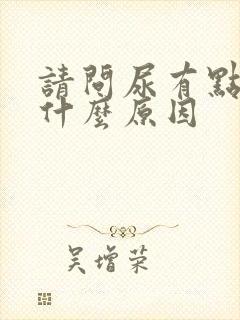 請問尿有點
什麼原因
吳增荣